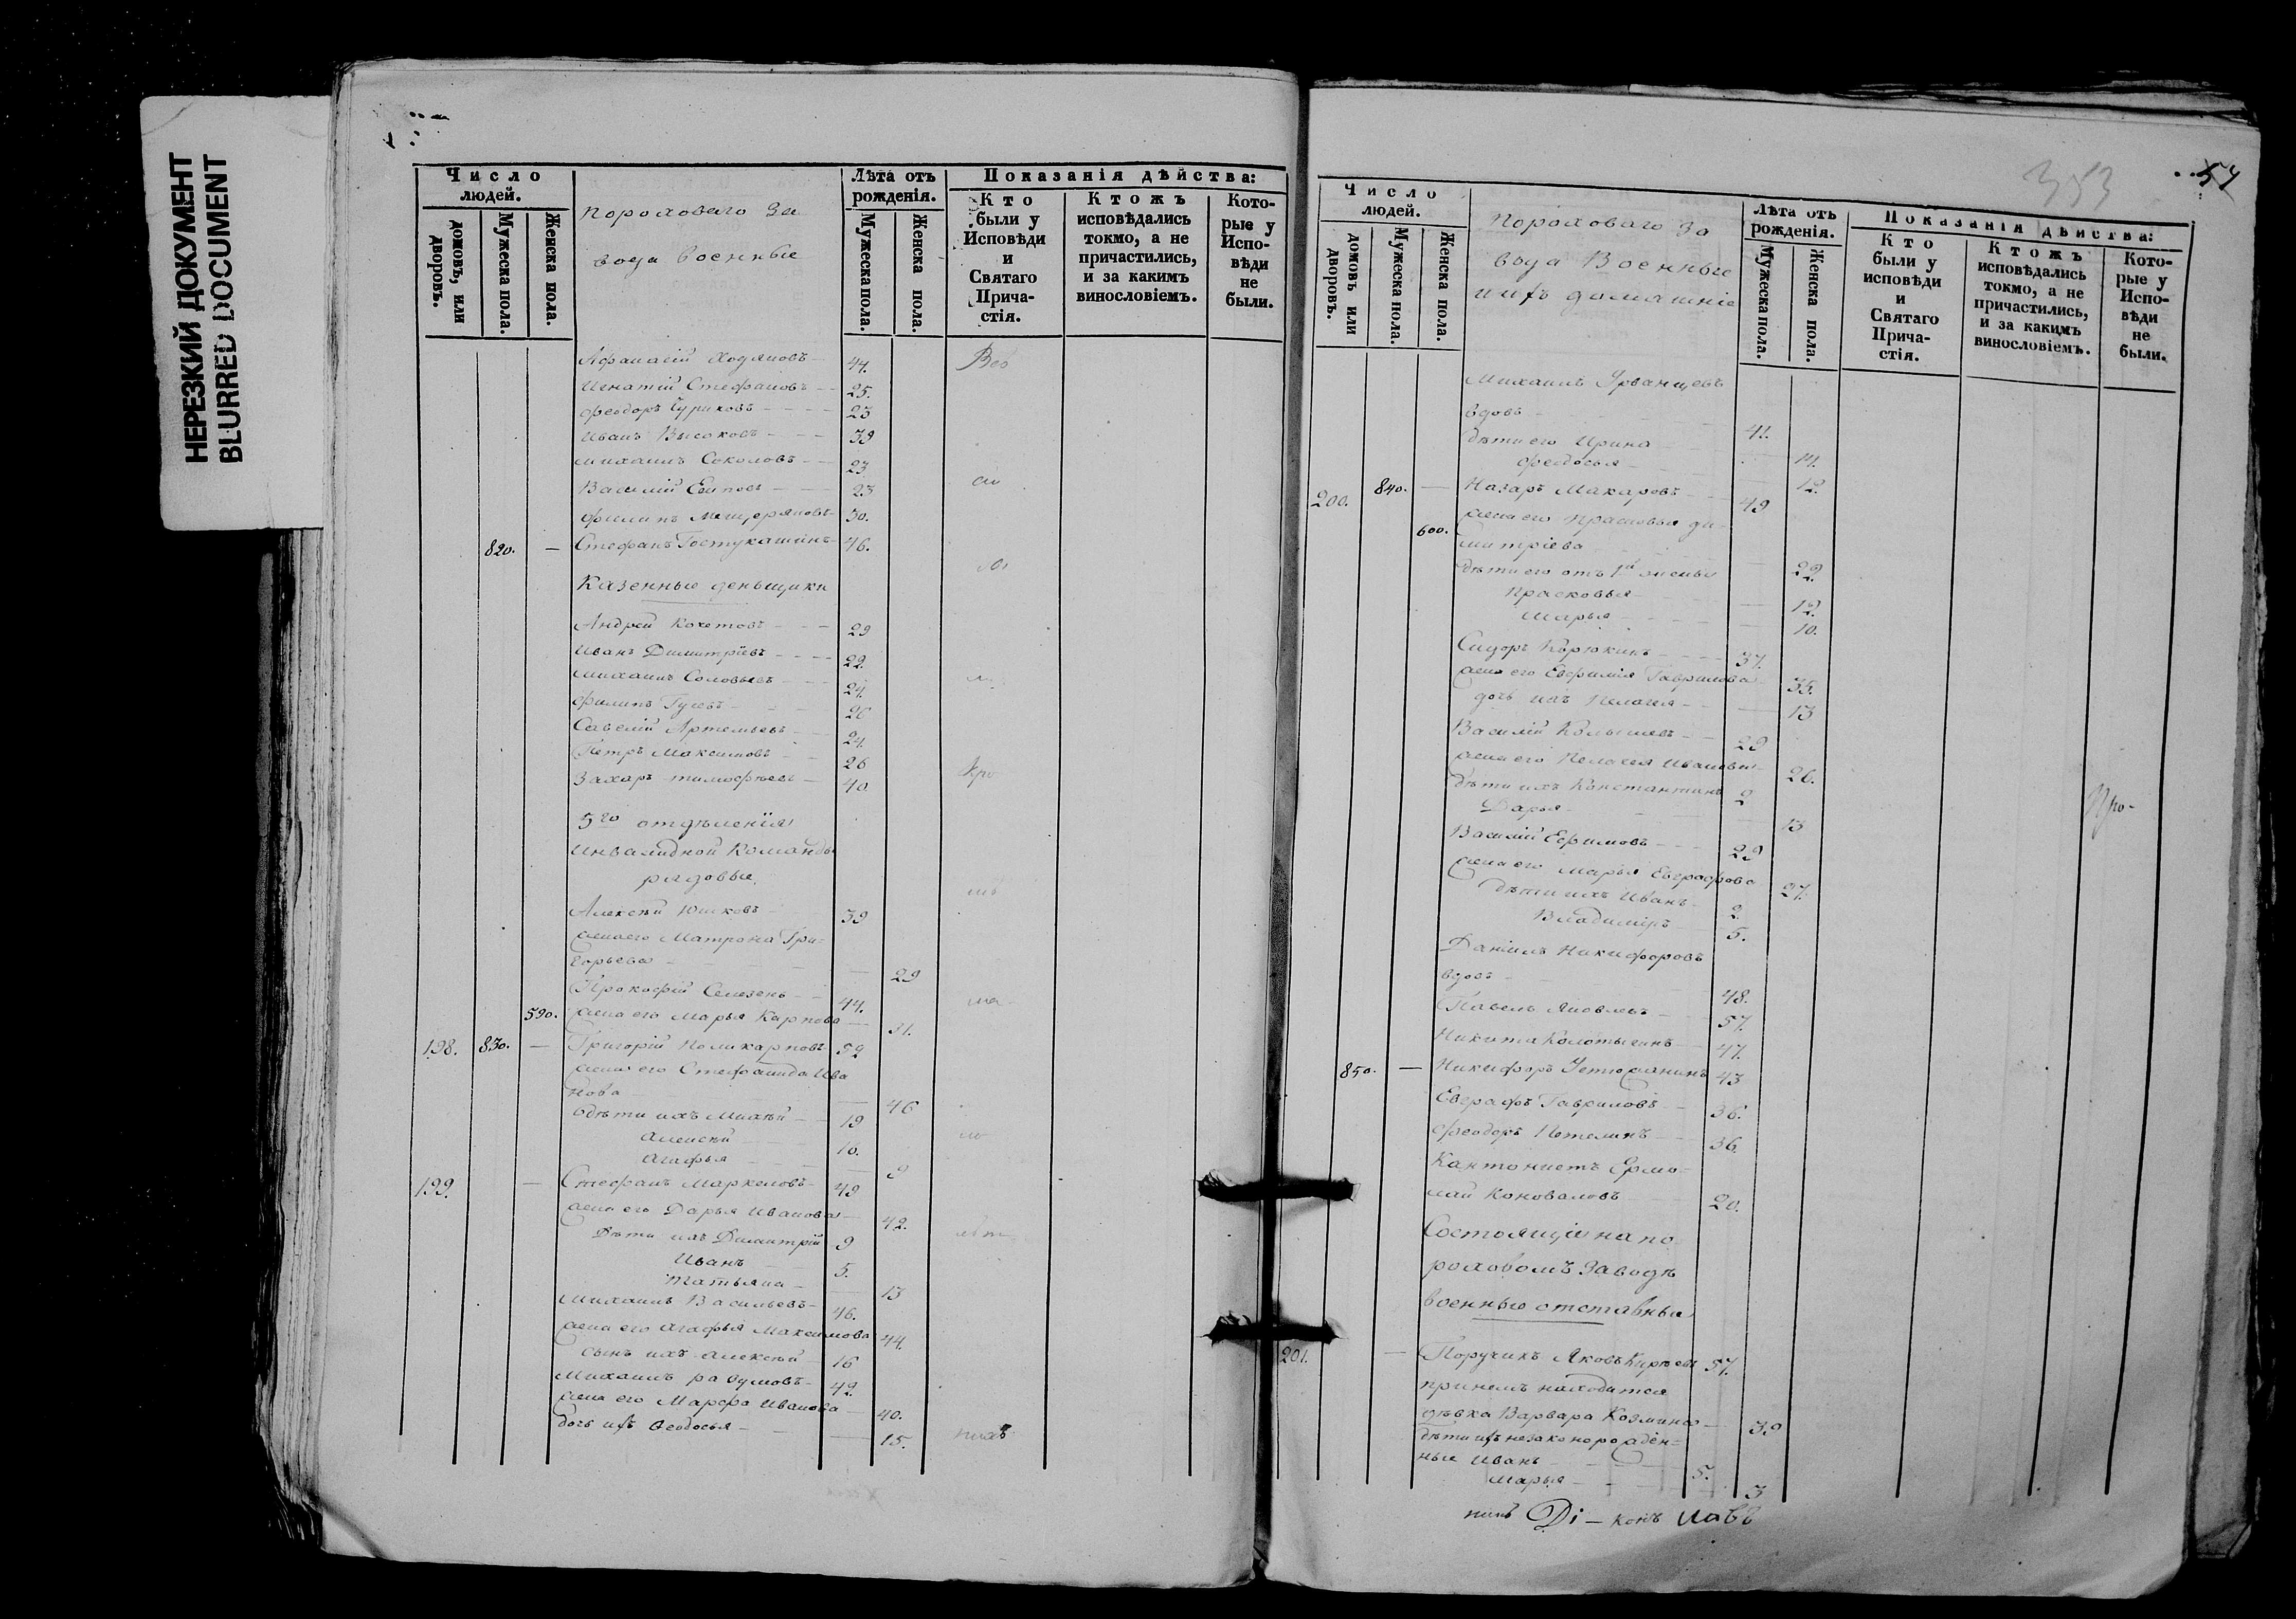 НЕРЕЗКИЙ ДОКУМЕНТ
BLURRED DOCUMENT
Число людей.
домовъ, или дворовъ.
Мужеска пола.
Женска пола.
Пороховаго За
вода военные
Лѣта отъ рожденія.
Мужеска пола.
Женска пола.
Показанія дѣйства:
Кто были у Исповѣди и Святаго Прича-стія.
Ктожъ исповѣдались токмо, а не причастились, и за какимъ винословіемъ.
Кото-рые у Испо-вѣди не были.
Афанасій Ходяповъ 44.
Игнатій Стефановъ 25.
Феодоръ Чуриковъ 23
Иванъ Высоковъ 39
Михаилъ Соколовъ 23
Василій Есиповъ 23
Филипъ Мещеряковъ 30.
820. — Стефанъ 46.
Казенные деньщики
Андрей Кочетовъ 29
Иванъ Димитріевъ 22.
Михаилъ Соловьевъ 24.
Филипъ Гусевъ 26
Савелій Артемьевъ 24.
Петръ Максимовъ 26
Захаръ Тимофѣевъ 40
5го отдѣленія
Инвалидной Команды
рядовые
Алексѣй Юшковъ 39
жена его Матрона Гри=
горьева 29
Прокофій Селезень 44.
590. жена его Марья Карпова 31.
198. 830. — Григорій Поликарповъ 52
жена его Стефанида Ива
нова 46
дѣти ихъ Михѣй 19
Алексѣй 16.
Агафья 9
199. — Стефанъ Маркеловъ 49
жена его Дарья Иванова 42.
Дѣти ихъ Димитрій 9
Иванъ 5.
Татьяна 13
Михаилъ Васильевъ 46.
жена его Агафья Максимова 44.
сынъ ихъ Алексѣй 16
Михаилъ Разумовъ 42.
жена его Марфа Иванова 40.
дочь ихъ Феодосья 15.
353
54
Число людей.
домовъ или дворовъ.
Мужеска пола.
Женска пола.
Пороховаго За
вода Военные
и ихъ домашніе
Лѣта отъ рожденія.
Мужеска пола.
Женска пола.
Показанія дѣйства:
Кто были у исповѣди и Святаго Прича-стія.
Ктожъ исповѣдались токмо, а не причастились, и за какимъ винословіемъ.
Кото-рые у Испо-вѣди не были.
Михаилъ Урванцевъ
вдовъ 41.
дѣти его Ирина 14.
Феодосья 12.
200. 840. — Назаръ Макаровъ 49
600. жена его Прасковья Ди-
митріева 22.
дѣти его отъ 1й жены
Прасковья 12.
Марья 10.
Сидоръ Корюкинъ 37.
жена его Евфимія Гаврилова 35.
дочь ихъ Пелагея 13
Василій 29
жена его Пелагея Иванова 26.
дѣти ихъ Константинъ 2
Дарья 13
Василій Ефимовъ 29
жена его Марья Евграфова 27.
дѣти ихъ Иванъ 2.
Владиміръ 5.
Даніилъ Никифоровъ
вдовъ 48.
Павелъ Яковлевъ 57.
Никита Колотыгинъ 47.
850. — Никифоръ Устюжанинъ 43
Евграфъ Гавриловъ 36.
Феодоръ Петелинъ 36.
Кантонистъ Ермо-
лай Коноваловъ 20.
Состоящіе на по
роховомъ Заводѣ
военные отставные
201. — Поручикъ Яковъ Кирѣевъ 57.
при немъ находится
дѣвка Варвара Козмина 39
дѣти ихъ незаконорожден=
ные Иванъ 5.
Марья 3